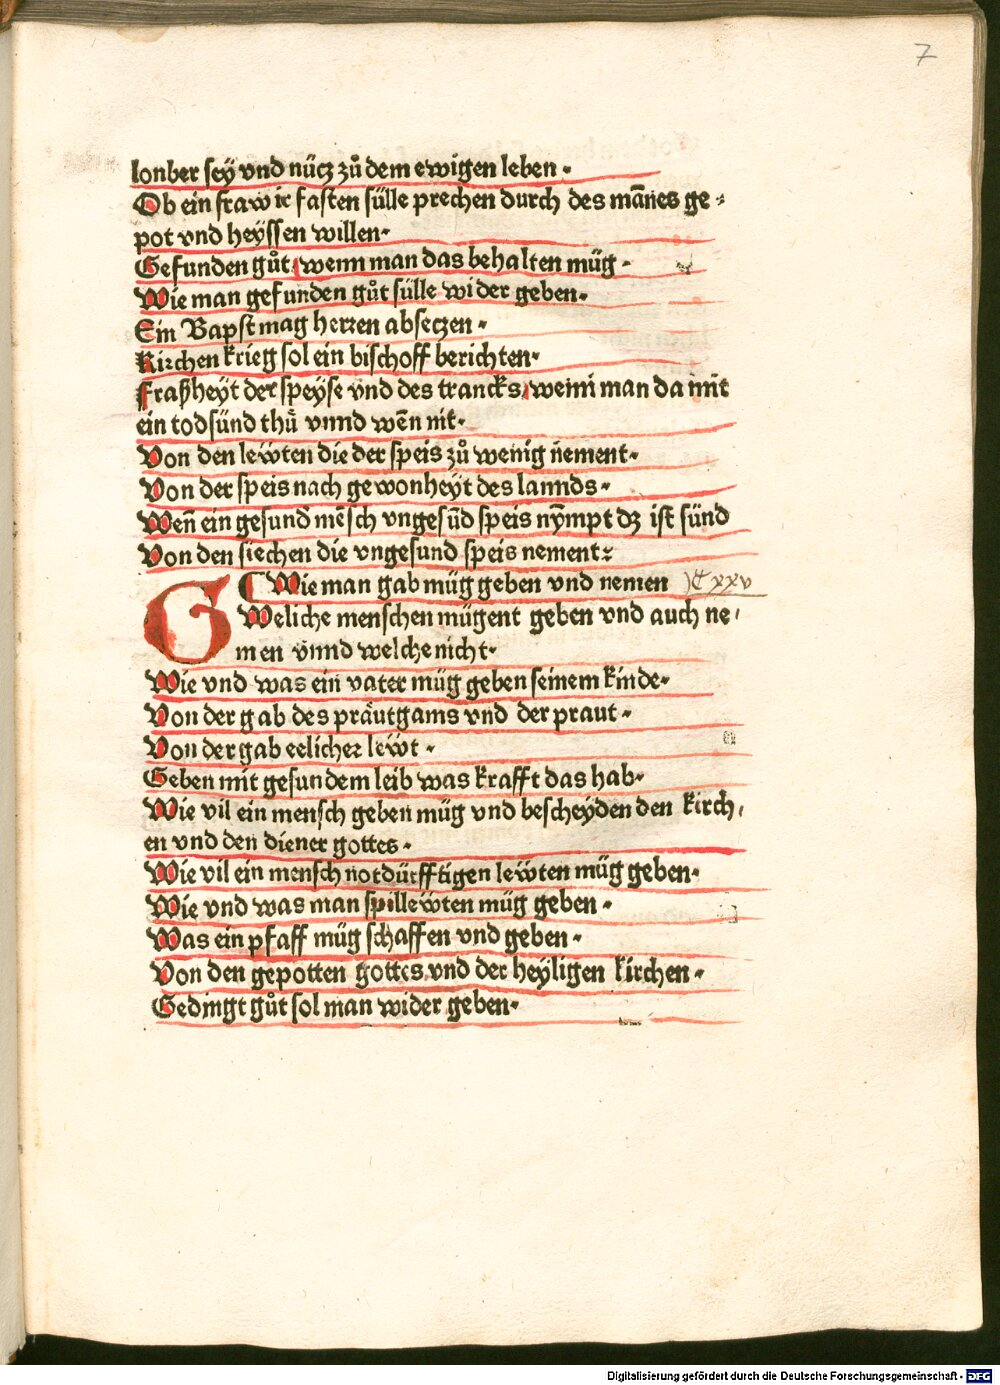 7
lonber sey vnd nücz zů dem ewigen leben.
Ob ein fraw ir fasten sülle prechen durch des mānes ge-
pot vnd heyssen willen.
Gefunden gůt, wenn man das behalten müg.
Wie man gefunden gůt sülle wider geben.
Ein Bapst mag herren abseczen.
Kirchen krieg sol ein bischoff berichten.
Fraßheyt der speyse vnd des trancks, wenn man da mit
ein todsünd thů vnnd wēn nit.
Von den lewten die der speis zů wenig nement.
Von der speis nach gewonheyt des lannds.
Weñ ein gesund mēsch vngesūd speis nympt dz ist sünd
Von den siechen die vngesund speis nement:
G Wie man gab müg geben vnd nemen Cxxv
Weliche menschen mügent geben vnd auch ne-
men vnnd welche nicht.
Wie vnd was ein vater müg geben seinem kinde.
Von der gab des präutgams vnd der praut.
Von der gab eelicher lewt.
Geben mit gesundem leib was krafft das hab.
Wie vil ein mensch geben müg vnd bescheyden den kirch-
en vnd den diener gottes.
Wie vil ein mensch notdürfftigen lewten müg geben.
Wie vnd was man spillewten müg geben.
Was ein pfaff müg schaffen vnd geben.
Von den gepotten gottes vnd der heyligen kirchen.
Gedingt gůt sol man wider geben.
Digitalisierung gefördert durch die Deutsche Forschungsgemeinschaft - DFG